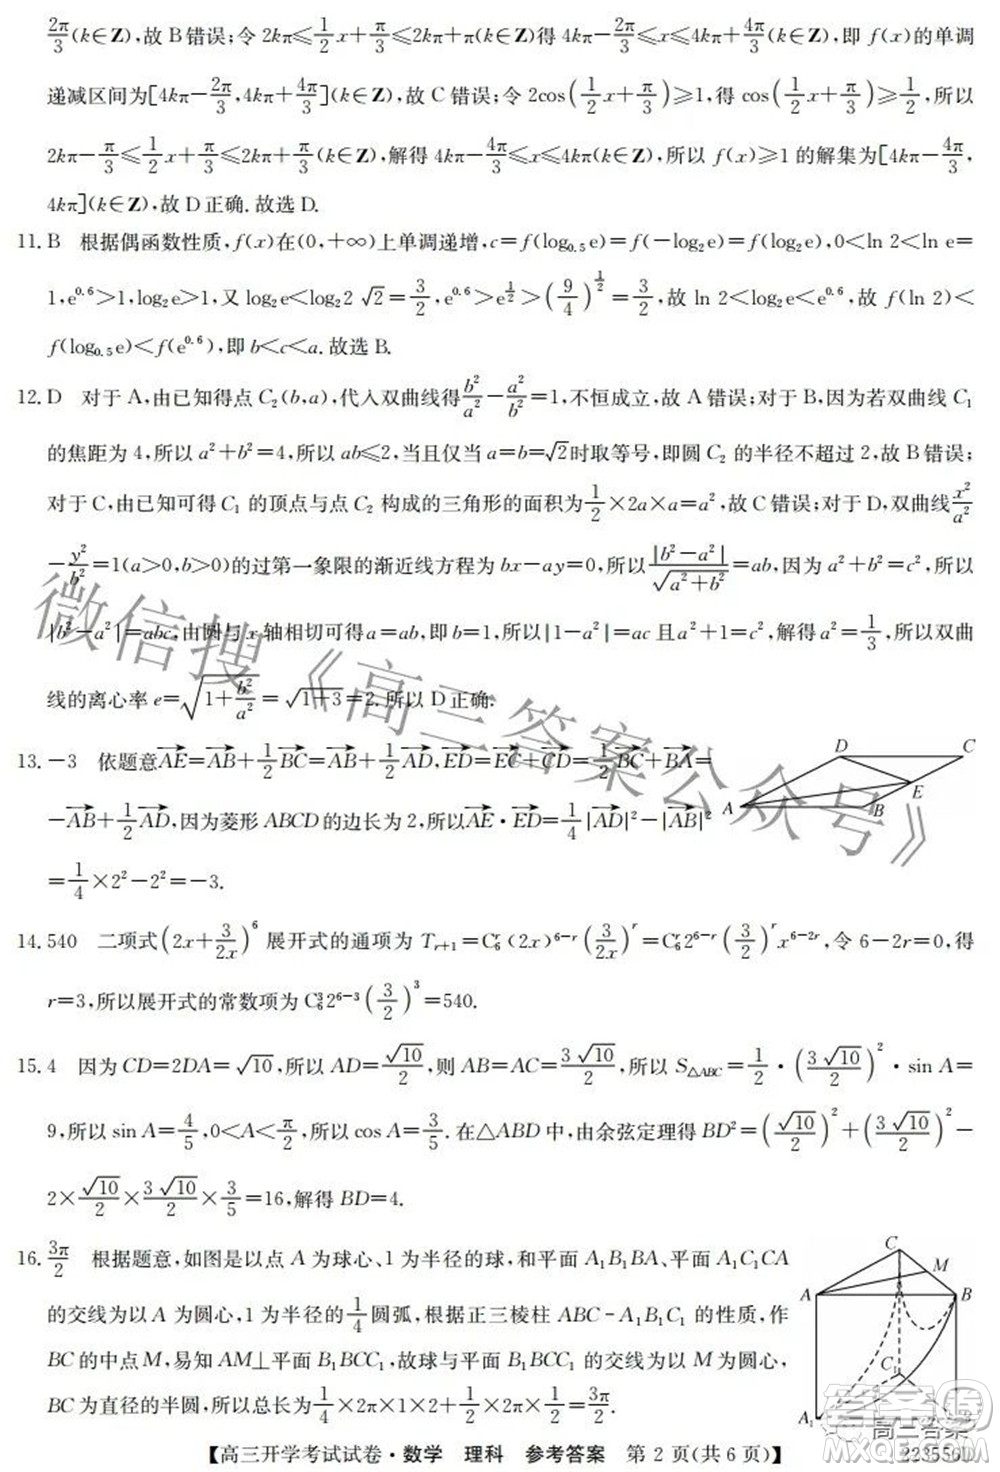 2π/3(k∈Z),故 B 错误;令 2kπ≤1/2x+π/3≤2kπ+π(k∈Z)得 4kπ-2π/3≤x≤4kπ+4π/3(k∈Z),即 f(x)的单调
递减区间为[4kπ-2π/3,4kπ+4π/3](k∈Z),故 C 错误;令 2cos(1/2x+π/3)≥1,得 cos(1/2x+π/3)≥1/2,所以
2kπ-π/3≤1/2x+π/3≤2kπ+π/3(k∈Z),解得 4kπ-4π/3≤x≤4kπ(k∈Z),所以 f(x)≥1 的解集为[4kπ-4π/3,
4kπ](k∈Z),故 D 正确.故选 D.
11. B 根据偶函数性质,f(x)在(0,+∞)上单调递增,c=f(log₀.₅e)=f(-log₂e)=f(log₂e),0<ln 2<ln e=
1,e^0.6>1,log₂e>1,又 log₂e<log₂2√2=3/2,e^0.6>e^(1/2)>(9/4)^(1/2)=3/2,故 ln 2<log₂e<e^0.6,故 f(ln 2)<
f(log₀.₅e)<f(e^0.6),即 b<c<a.故选 B.
12. D 对于 A,由已知得点 C₂(b,a),代入双曲线得b²/a²-a²/b²=1,不恒成立,故 A 错误;对于 B,因为若双曲线 C₁
的焦距为 4,所以 a²+b²=4,所以 ab≤2,当且仅当 a=b=√2时取等号,即圆 C₂ 的半径不超过 2,故 B 错误;
对于 C,由已知可得 C₁ 的顶点与点 C₂ 构成的三角形的面积为1/2×2a×a=a²,故 C 错误;对于 D,双曲线x²/a²
-y²/b²=1(a>0,b>0)的过第一象限的渐近线方程为 bx-ay=0,所以|b²-a²|/√(a²+b²)=ab,因为 a²+b²=c²,所以
|b²-a²|=abc,由圆与 x 轴相切可得 a=ab,即 b=1,所以|1-a²|=ac 且 a²+1=c²,解得 a²=1/3,所以双曲
线的离心率 e=√(1+b²/a²)=√(1+3)=2.所以 D 正确.
13. -3 依题意AE=AB+1/2BC=AB+1/2AD,ED=EC+CD=1/2BC+BA=
-AB+1/2AD,因为菱形 ABCD 的边长为 2,所以AE·ED=1/4|AD|²-|AB|²
=1/4×2²-2²=-3.
D C E A B
14. 540 二项式(2x+3/2x)⁶ 展开式的通项为 Tᵣ₊₁=C₆^r(2x)^(6-r)(3/2x)^r=C₆^r2^(6-r)(3/2)^r x^(6-2r),令 6-2r=0,得
r=3,所以展开式的常数项为 C₆³2^(6-3)(3/2)³=540.
15. 4 因为 CD=2DA=√10,所以 AD=√10/2,则 AB=AC=3√10/2,所以 S△ABC=1/2·(3√10/2)²·sin A=
9,所以 sin A=4/5,0<A<π/2,所以 cos A=3/5.在△ABD 中,由余弦定理得 BD²=(√10/2)²+(3√10/2)²-
2×√10/2×3√10/2×3/5=16,解得 BD=4.
16. 3π/2 根据题意,如图是以点 A 为球心、1 为半径的球,和平面 A₁B₁BA、平面 A₁C₁CA
的交线为以 A 为圆心,1 为半径的1/4圆弧,根据正三棱柱 ABC-A₁B₁C₁ 的性质,作
BC 的中点 M,易知 AM⊥平面 B₁BCC₁,故球与平面 B₁BCC₁ 的交线为以 M 为圆心,
BC 为直径的半圆,所以长度为1/4×2π×1×2+1/2×2π×1/2=3π/2.
C M A B C₁ A₁
【高三开学考试试卷·数学 理科 参考答案 第 2 页(共 6 页)】
微信搜《高三答案公众号》
高三答案